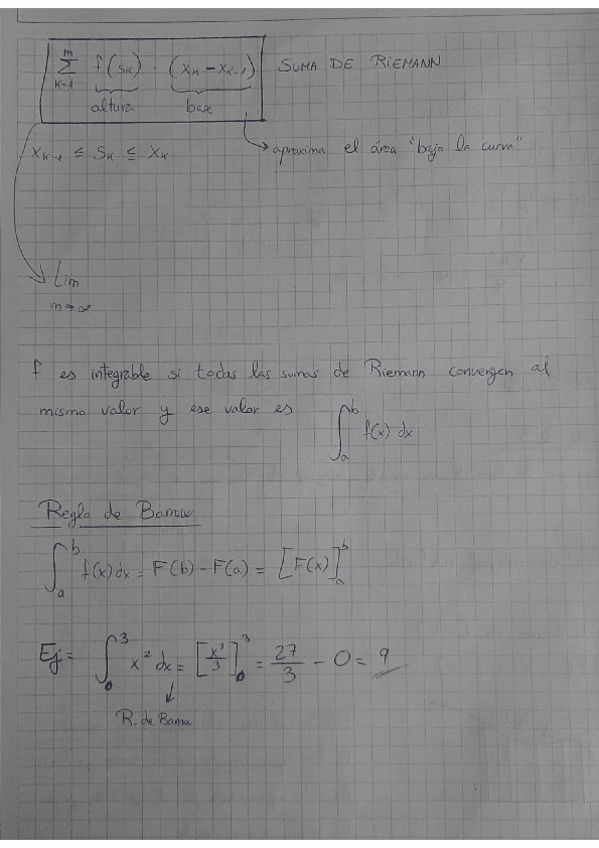 m
∑ f(sₖ) · (xₖ - xₖ₋₁) SUMA DE RIEMANN
k=1
altura base
xₖ₋₁ ≤ sₖ ≤ xₖ
aproxima el área "bajo la curva"
Lim
m→∞
f es integrable si todas las sumas de Riemann convergen al
mismo valor y ese valor es ∫ₐᵇ f(x) dx
Regla de Barrow
∫ₐᵇ f(x) dx = F(b) - F(a) = [F(x)]ₐᵇ
Ej= ∫₀³ x² dx = [x³/3]₀³ = 27/3 - 0 = 9
R. de Barrow